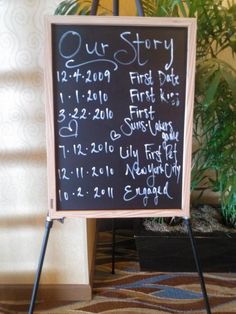 Our Story
12.4.2009 First Date
1.1.2010 First Kiss
3.22.2010 First
Suns-Lakers
game
7.12.2010 Lily First Pet
12.11.2010 New York City
10.2.2011 Engaged